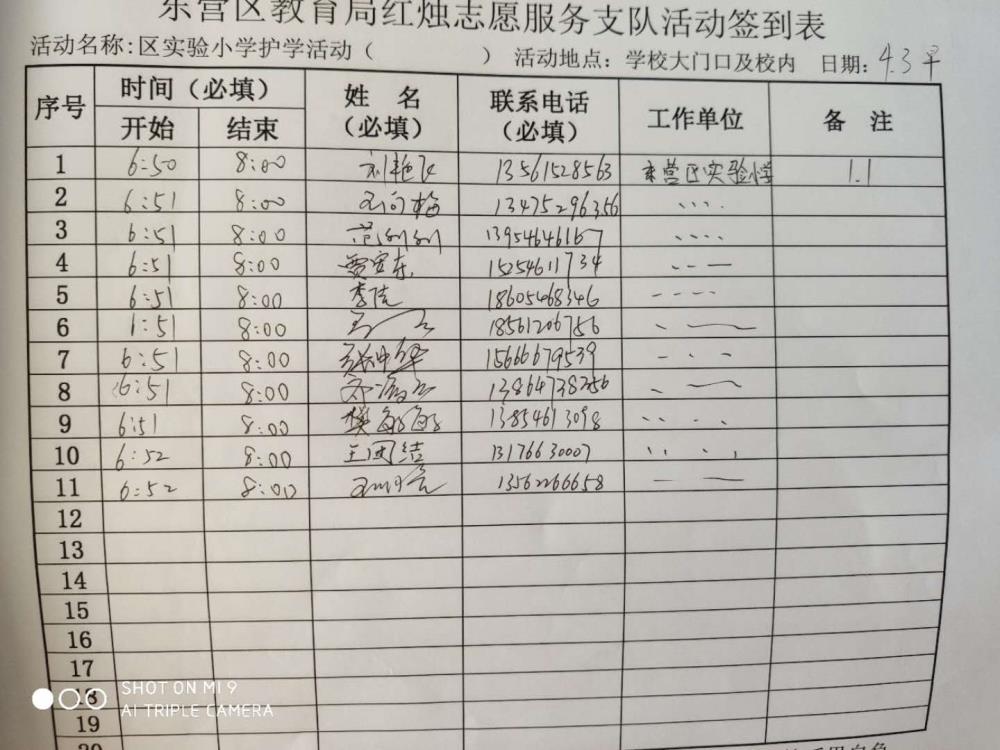 东营区教育局红烛志愿服务支队活动签到表
活动名称:区实验小学护学活动（ ） 活动地点：学校大门口及校内 日期：4.3 早
序号 时间（必填） 姓 名（必填） 联系电话（必填） 工作单位 备 注
开始 结束
1 6:50 8:00 13561528563 东营区实验小学 1.1
2 6:51 8:00 13475296356
3 6:51 8:00 13954646167
4 6:51 8:00 贾安东 15254611734
5 6:51 8:00 李 18605468346
6 6:51 8:00 18561206756
7 6:51 8:00 15666679539
8 6:51 8:00 13864738256
9 6:51 8:00 13854613098
10 6:52 8:00 王团结 13176630007
11 6:52 8:00 13562266658
12
13
14
15
16
17
18
19
20
SHOT ON MI 9
AI TRIPLE CAMERA